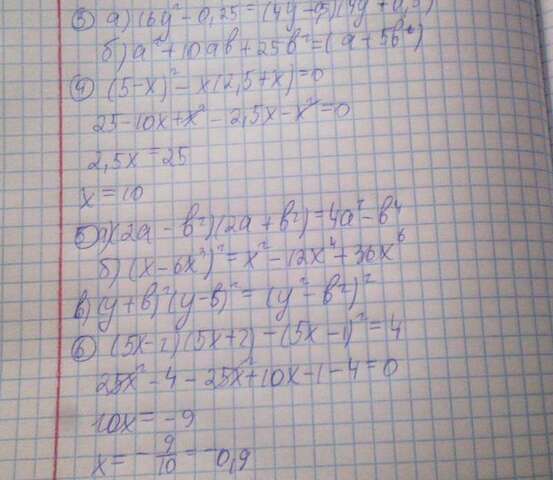 ③ а) 16y² - 0,25 = (4y - 0,5)(4y + 0,5)
б) a² + 10ab + 25b² = (a + 5b)²
④ (5-x)² - x(2,5+x)=0
25-10x+x² - 2,5x-x²=0
2,5x = 25
x = 10
⑤ а) (2a - b²)(2a + b²) = 4a² - b⁴
б) (x - 6x³)² = x² - 12x⁴ + 36x⁶
в) (y+b)²(y-b)² = (y² - b²)²
⑥ (5x-2)(5x+2) - (5x-1)² = 4
25x² - 4 - 25x² + 10x - 1 - 4 = 0
10x = -9
x = -9/10 = -0,9